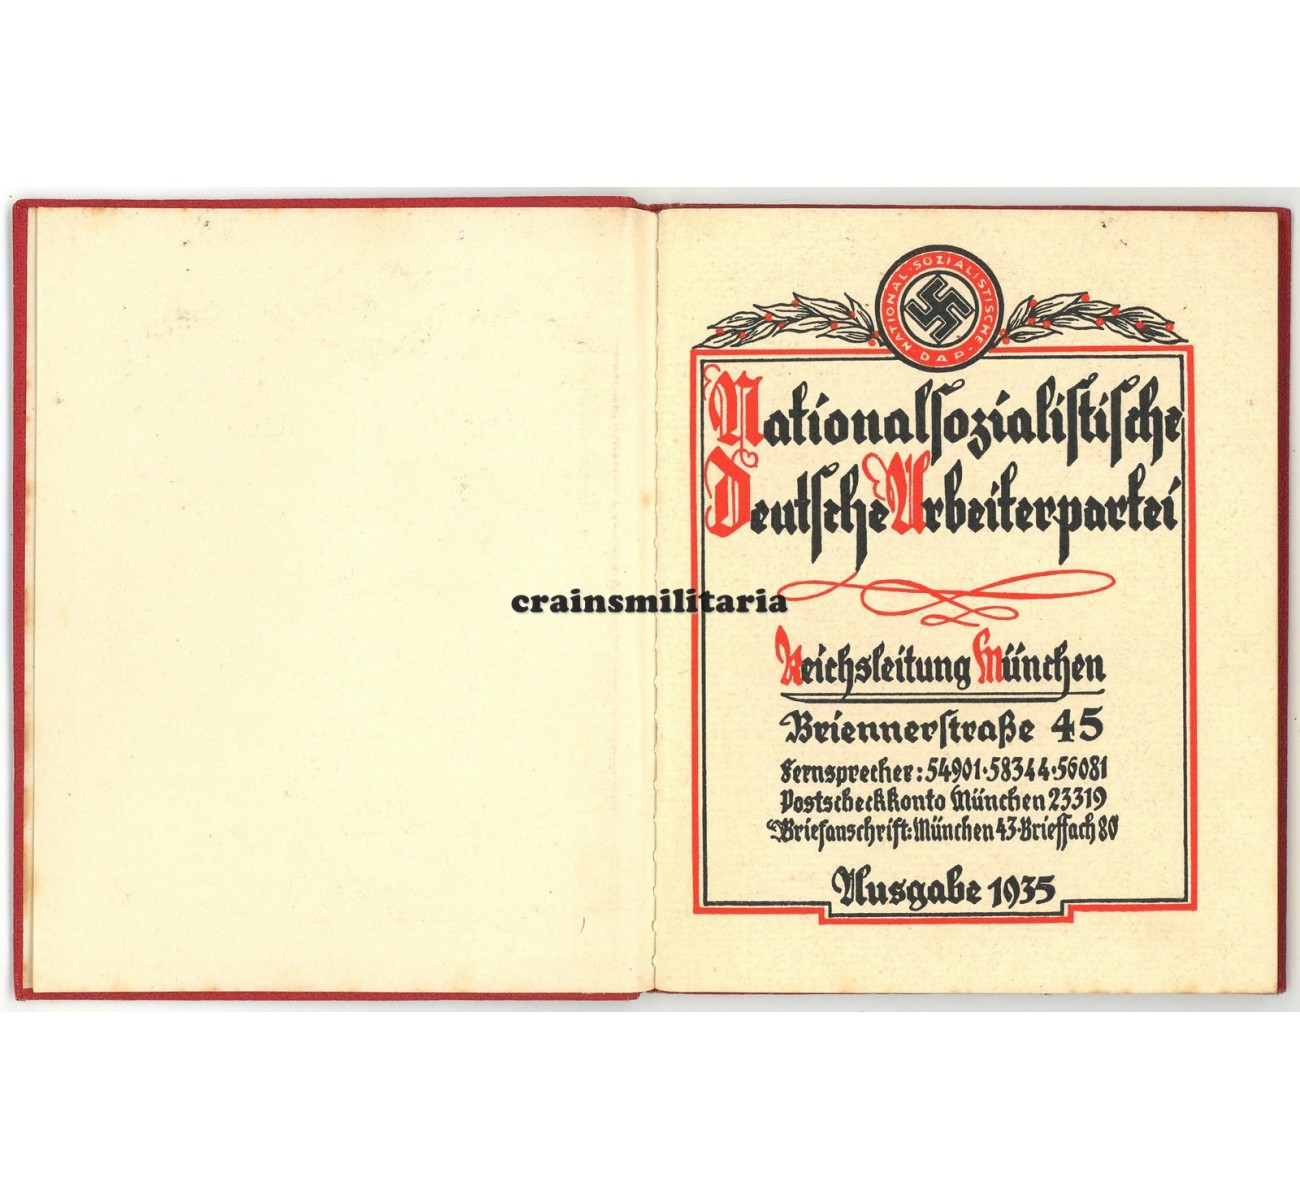 NATIONAL-SOZIALISTISCHE
D·A·P·
Nationalsozialistische
Deutsche Arbeiterpartei
crainsmilitaria
Reichsleitung München
Briennerstraße 45
Fernsprecher: 54901·58344·56081
Postscheckkonto München 23319
Briefanschrift: München 43·Brieffach 80
Ausgabe 1935